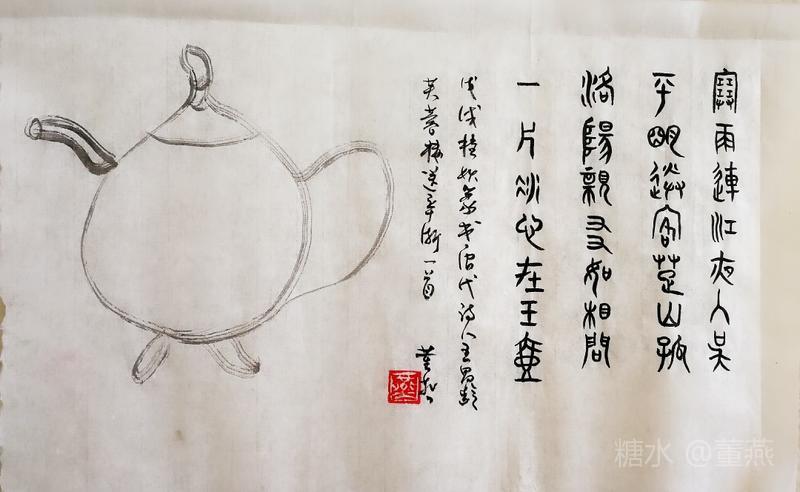 寒雨連江夜入吳
平明送客楚山孤
洛陽親友如相問
一片冰心在玉壺
戊戌桂秋篆書唐代詩人王昌齡
芙蓉樓送辛漸一首
董燕
糖水 @董燕